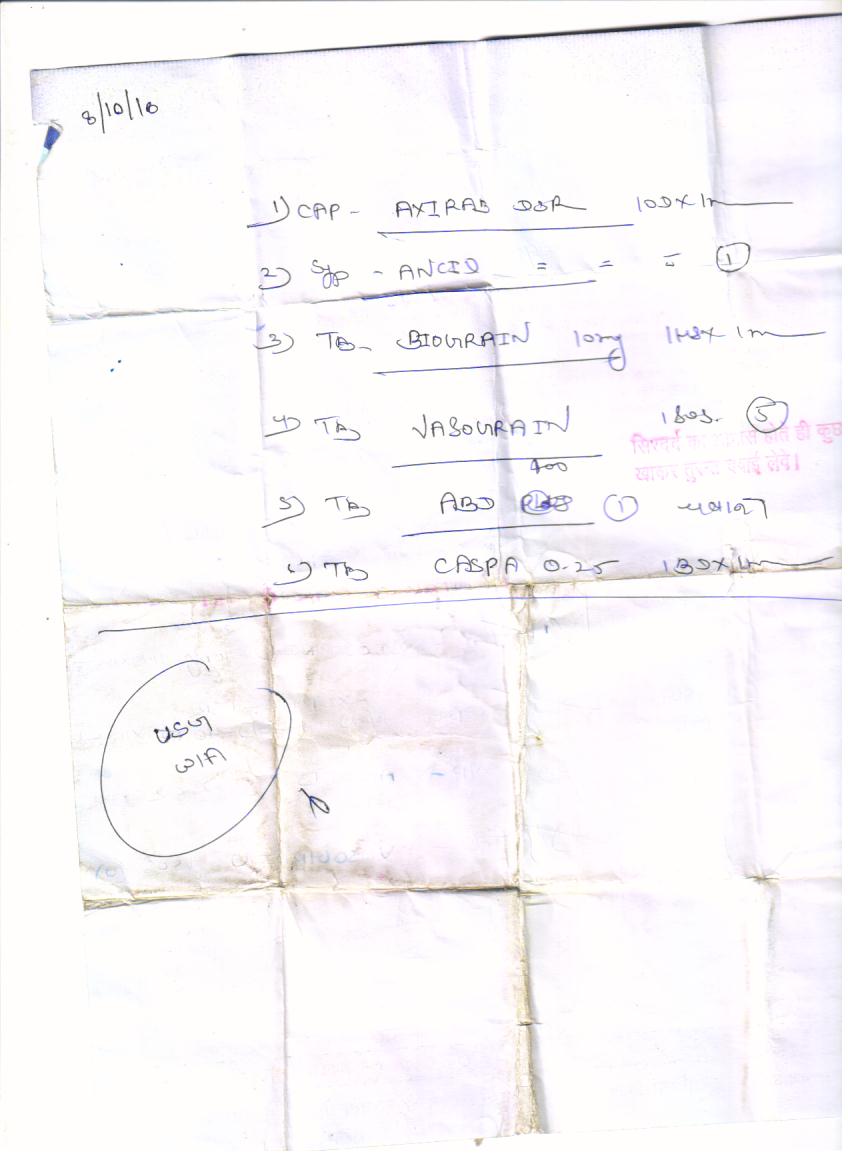 8/10/16
1) CAP - AXIRAB DSR 1OD X 1m
2) Syp - ANCID = = = ①
3) TB - BIOGRAIN 10mg 1HS X 1m
4) TB VASOGRAIN 1 SOS. ⑤
सिरदर्द का होते ही कुछ
खाकर तुरन्त दवाई लेवे।
400
5) TB ABD ① चबाना
6) TB CASPA 0.25 1BD X 1m
USG
W/A